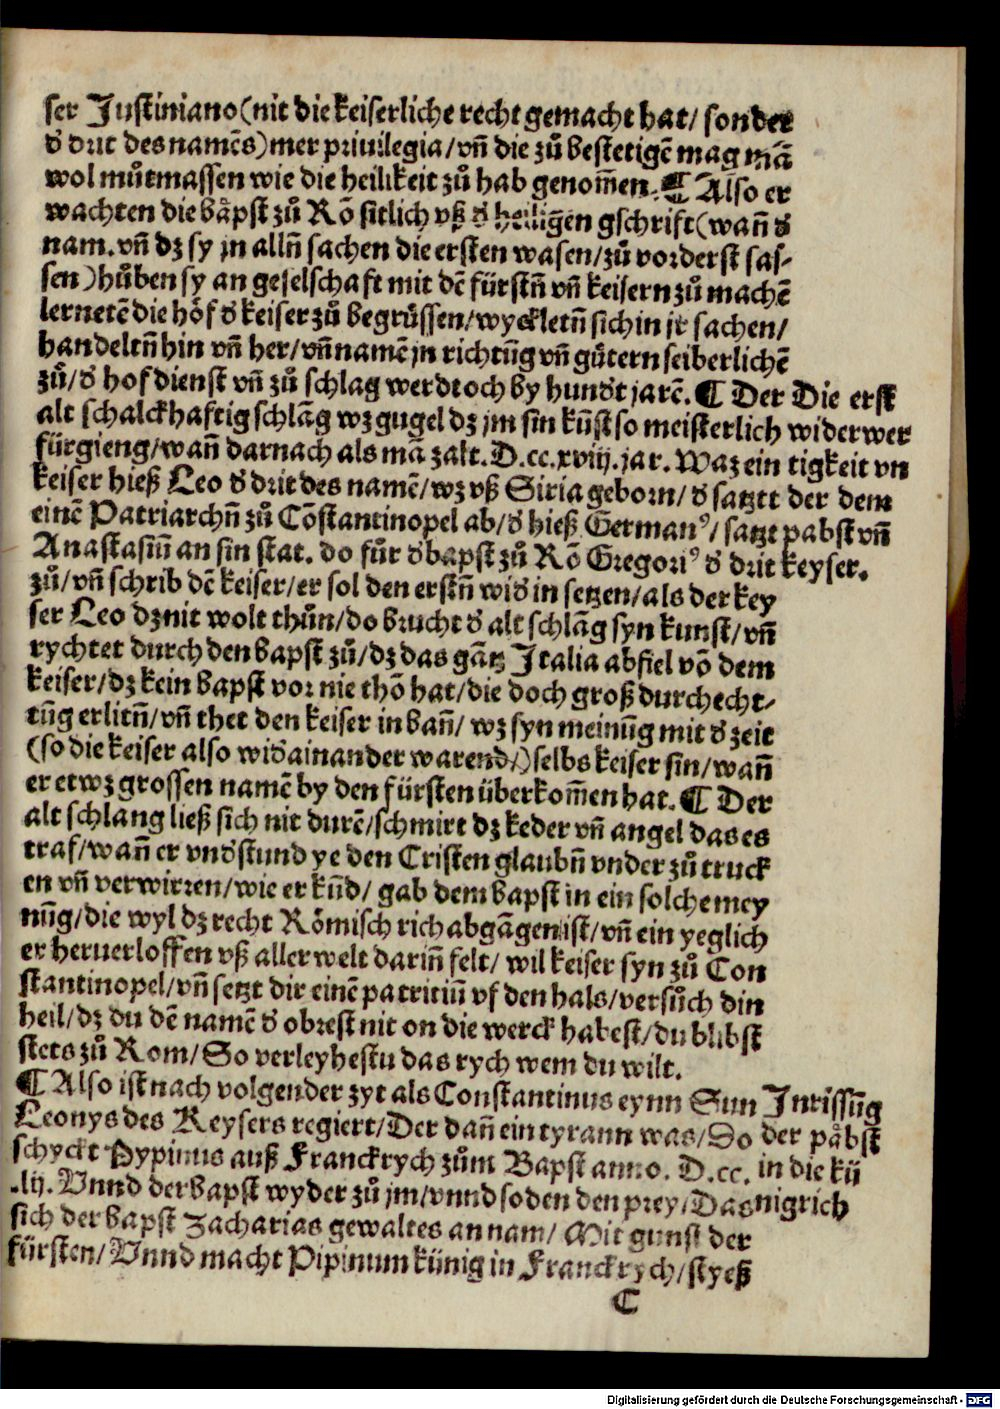 ser Justiniano(nit die keiserliche recht gemacht hat/ sonder
d' drit des namēs)mer priuilegia/vn̄ die zů bestetigē mag mā
wol můtmassen wie die heilikeit zů hab genom̄en. ¶ Also er
wachten die bäpst zů Rō sitlich vß d' heiligen gschrift(wan̄ d'
nam. vn̄ dz sy jn alln̄ sachen die ersten wasen/zů vorderst sas-
sen)hůben sy an geselschaft mit dē fürstn̄ vn̄ keisern zů machē
lernetē die höf d' keiser zů begrüssen/wyckletn̄ sich in jr sachen/
handeltn̄ hin vn̄ her/vn̄ namē jn richtūg vn̄ gůtern seiberlichē
zů/d' hof dienst vn̄ zů schlag werdt och by hund't jarē. ¶ Der Die erst
alt schalckhaftig schlāg wz gugel dz jm sin kūst so meisterlich wider wer
fürgieng/wan̄ darnach als mā zalt. D.cc.xviij.jar. Waz ein tigkeit vn
keiser hieß Leo d' drit des namē/wz vß Siria geborn/d' satzt der dem
einē Patriarchn̄ zů Cōstantinopel ab/d' hieß Germanꝰ/ satzt pabst vn̄
Anastasiū an sin stat. do fůr d' bapst zů Rō Gregoriꝰ d' drit keyser.
zů/vn̄ schrib dē keiser/er sol den erstn̄ wid' in setzen/als der key
ser Leo dz nit wolt thůn/do brucht d' alt schlāg syn kunst/vn̄
rychtet durch den bapst zů/dz das gātz Italia abfiel vō dem
keiser/dz kein bapst vor nie thō hat/die doch groß durchecht-
tūg erlitn̄/vn̄ thet den keiser in ban̄/ wz syn meinūg mit d' zeit
(so die keiser also wid' ainander warend/)selbs keiser sin/wan̄
er etwz grossen namē by den fürsten überkom̄en hat. ¶ Der
alt schlang ließ sich nit durē/schmirt dz keder vn̄ angel das es
traf/wan̄ er vnd'stund ye den Cristen glaubn̄ vnder zů truck
en vn̄ verwirren/wie er kūd/ gab dem bapst in ein solche mey
nūg/die wyl dz recht Römisch rich abgāgen ist/vn̄ ein yeglich
er heruerloffen vß aller welt darin̄ felt/ wil keiser syn zů Con
stantinopel/vn̄ setzt dir einē patritiū vf den hals/versůch din
heil/dz du dē namē d' obrest nit on die werck habest/du blibst
stets zů Rom/So verleyhestu das rych wem du wilt.
¶ Also ist nach volgender zyt als Constantinus eynn Sun Inrissūg
Leonys des Keysers regiert/Der dan̄ ein tyrann was/So der päbst
schyckt Pypinus auß Franckrych zům Bapst anno. D.cc. in die kü
.lij. Vnnd der bapst wyder zů jm/vnnd so den den prey/Das nigrich
sich der bapst Zacharias gewaltes an nam/ Mit gunst der
fürsten/ Vnnd macht Pipinum künig in Franckrych/styeß
C
Digitalisierung gefördert durch die Deutsche Forschungsgemeinschaft - DFG